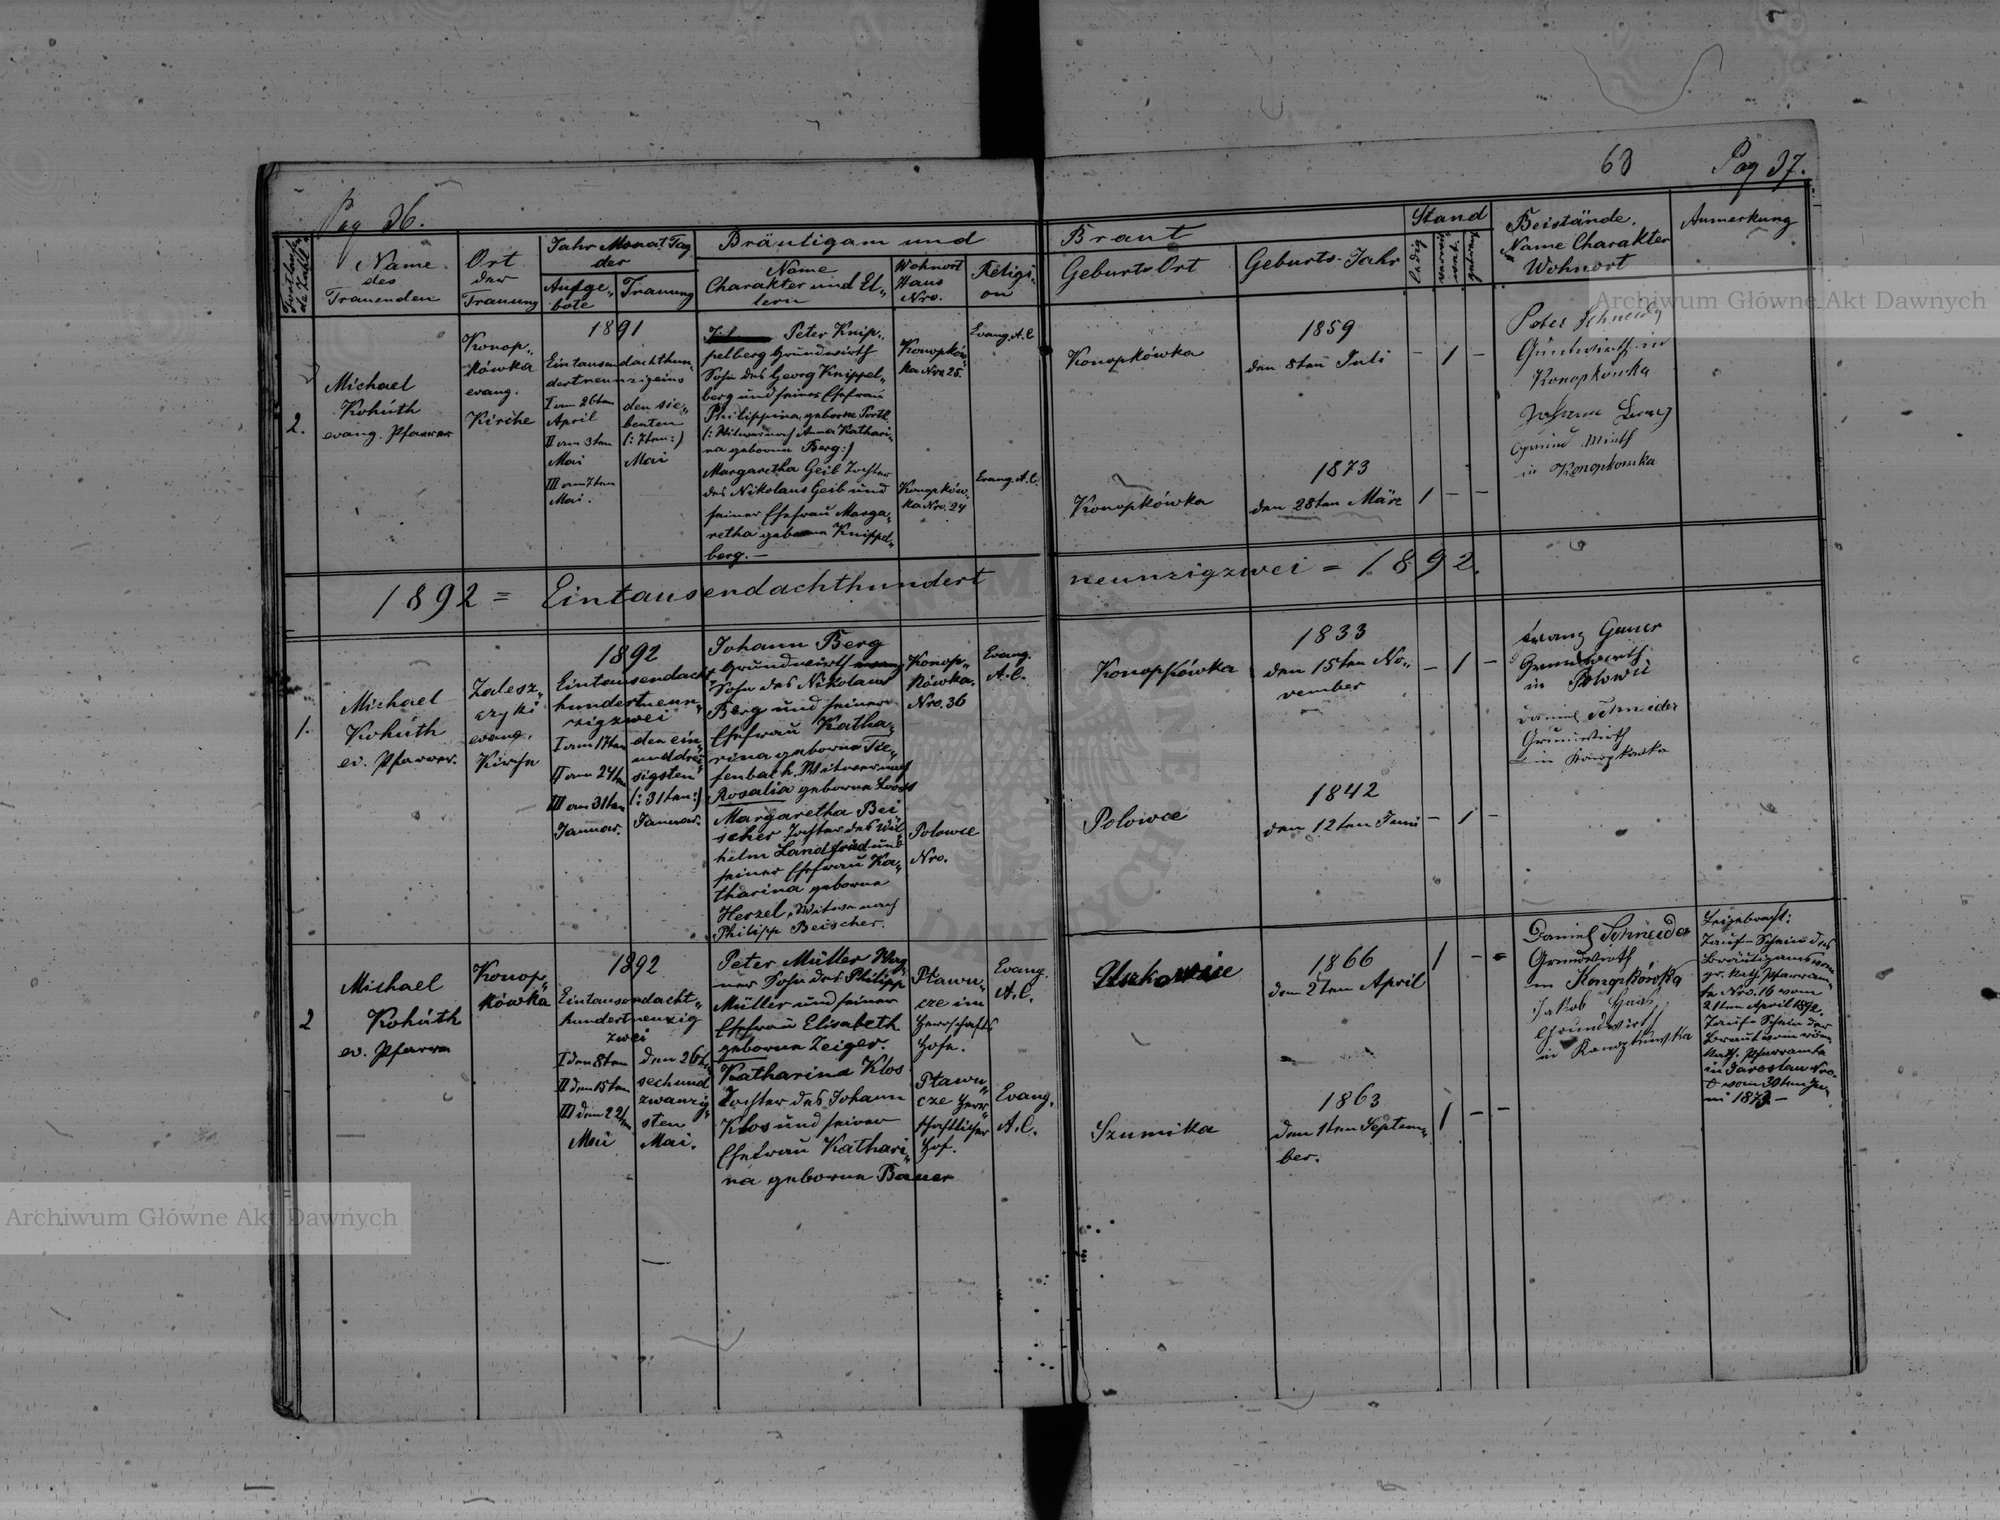 Pag 36.
63
Pag 37.
Fortlaufende Zahl
Name
des
Trauenden
Ort
der
Trauung
Jahr Monat Tag
der
Aufge-
bote
Trauung
Bräutigam und
Name
Charakter und El-
tern
Wohnort
Haus
Nro.
Religi-
on
Braut
Geburts Ort
Geburts-Jahr
Stand
ledig
verwitwet
Beistände.
Name Charakter
Wohnort
Anmerkung
2.
Michael
Kohúth
evang. Pfarrer
Konop-
kówka
evang.
Kirche
1891
Eintausendachthun-
dertneunzigeins
I am 26ten
April
II am 3ten
Mai
III am 7ten
Mai.
den sie-
benten
(: 7ten :)
Mai
Peter Knip-
pelberg Grundwirth
Sohn des Georg Knippel-
berg und seiner Ehefrau
Philippina geborne
(: Witwer nach Anna Kathari-
na geborene Berg :)
Margaretha Geib Tochter
des Nikolaus Geib und
seiner Ehefrau Marga-
retha geborne Knippel-
berg. —
Konopków-
ka Nro 25.
Konopków-
ka Nro. 24
Evang. A.C.
Evang. A.C.
Konopkówka
Konopkówka
1859
den 8ten Juli
1873
den 28ten März
– 1 –
1 – –
Peter Schneider
Grundwirth in
Konopkówka
Johann
Grund Wirth
in Konopkowka
1892 = Eintausendachthundert neunzigzwei = 1892.
1.
Michael
Kohúth
ev. Pfarrer.
Zalesz-
czyki
evang.
Kirche
1892
Eintausendacht
hundertneun-
zigzwei
I am 17ten
II am 24ten
III am 31ten
Januar.
den ein-
unddrei-
sigsten
(: 31ten :)
Januar.
Johann Berg
Grundwirth
Sohn des Nikolaus
Berg und seiner
Ehefrau Katha-
rina geborne Tie-
fenbach, Witwer nach
Rosalia geborne
Margaretha Bei
scher Tochter des Wil-
helm Landfried und
seiner Ehefrau Ka-
tharina geborne
Herzel, Witwe nach
Philipp Beischer.
Konop-
kówka
Nro. 36
Polowce
Nro.
Evang.
A.C.
Konopkówka
Polowce
1833
den 15ten No-
vember
1842
den 12ten Juni
– 1 –
– 1 –
Franz
Grundwirth
in
Daniel Schneider
Grundwirth
in Konopkowka
2
Michael
Kohúth
ev. Pfarrer
Konop-
kówka
1892
Eintausendacht-
hundertneunzig
zwei
I den 8ten
II den 15ten
III den 22ten
Mai
den 26ten
sechsund
zwanzig-
sten
Mai.
Peter Müller Wag-
ner Sohn des Philipp
Müller und seiner
Ehefrau Elisabeth
geborne Zeiger.
Katharina Klos
Tochter des Johann
Klos und seiner
Ehefrau Kathari-
na geborne Bauer
Ptawu-
cze im
Herrschafts
Hofe.
Ptawu-
cze Herr-
schaftlicher
Hof.
Evang.
A.C.
Evang.
A.C.
Szumika
1866
den 2ten April
1863
den 1ten Septem-
ber.
1 – =
1 – –
Daniel Schneider
Grundwirth
in Konopkówka
Jakob Haas
Grundwirth
in Konopkowka
Beigebracht:
Tauf-Schein des
Bräutigams vom
gr. kath. Pfarram-
te Nro. 16 vom
21ten April 1892.
Tauf-Schein der
Braut vom röm.
kath. Pfarramte
in Jaroslau Nro.
vom 30ten Ju-
ni 1873 —
Archiwum Główne Akt Dawnych
Archiwum Główne Akt Dawnych